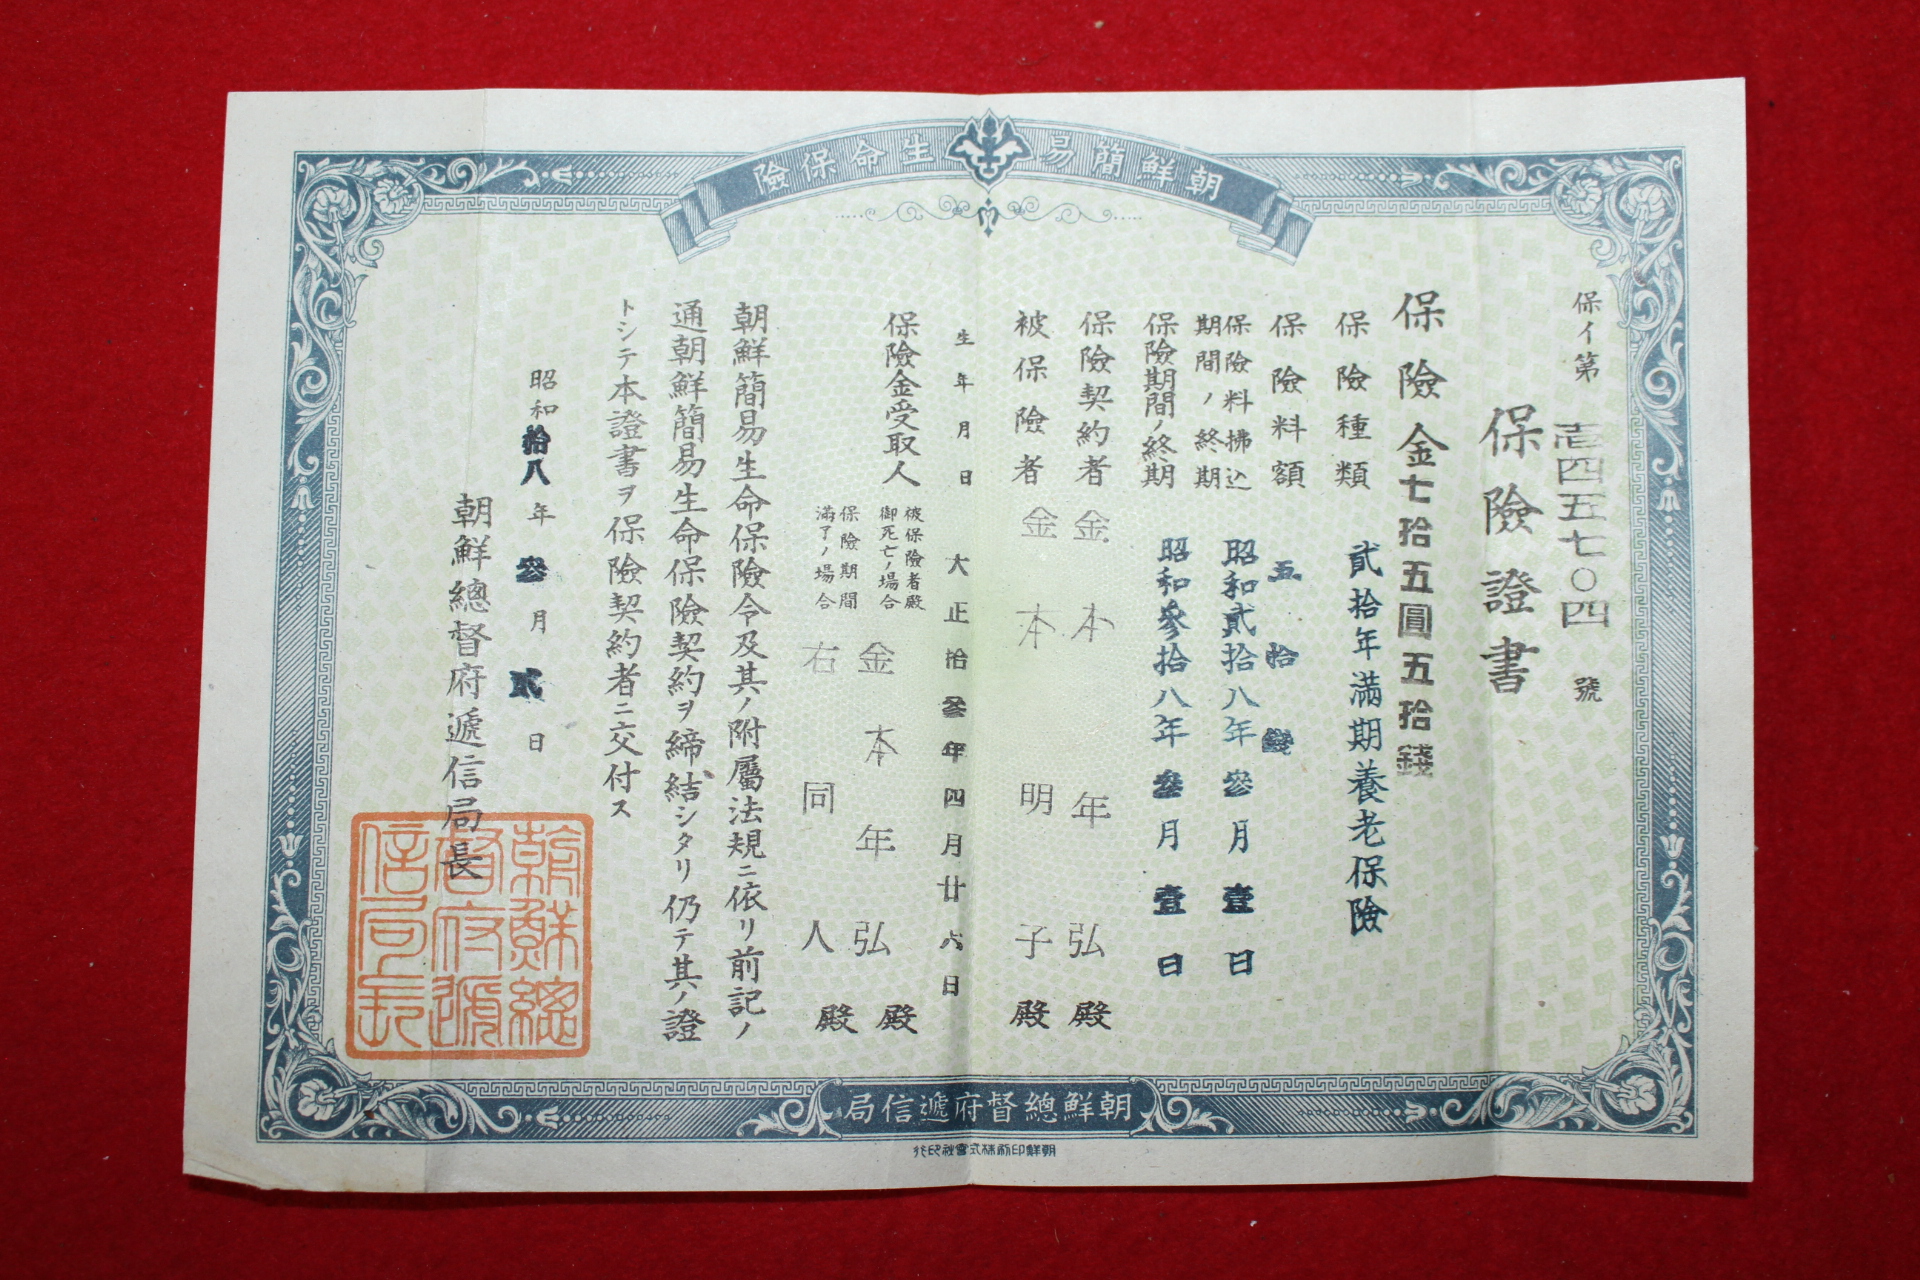 朝鮮簡易生命保險
保イ第壱四五七〇四號
保險證書
保險金七拾五圓五拾錢
保險種類 貳拾年滿期養老保險
保險料額 五拾錢
保險料拂込期間ノ終期 昭和貳拾八年參月壹日
保險期間ノ終期 昭和參拾八年叁月壹日
保險契約者 金本年弘殿
被保險者 金本明子殿
生年月日 大正拾參年四月廿六日
保險金受取人
被保險者殿御死亡ノ場合 金本年弘殿
保險期間滿了ノ場合 右同人殿
朝鮮簡易生命保險令及其ノ附屬法規ニ依リ前記ノ
通朝鮮簡易生命保險契約ヲ締結シタリ仍テ其ノ證
トシテ本證書ヲ保險契約者ニ交付ス
昭和拾八年參月貳日
朝鮮總督府遞信局長
朝鮮總督府遞信局長
朝鮮總督府遞信局
朝鮮印刷株式會社印行